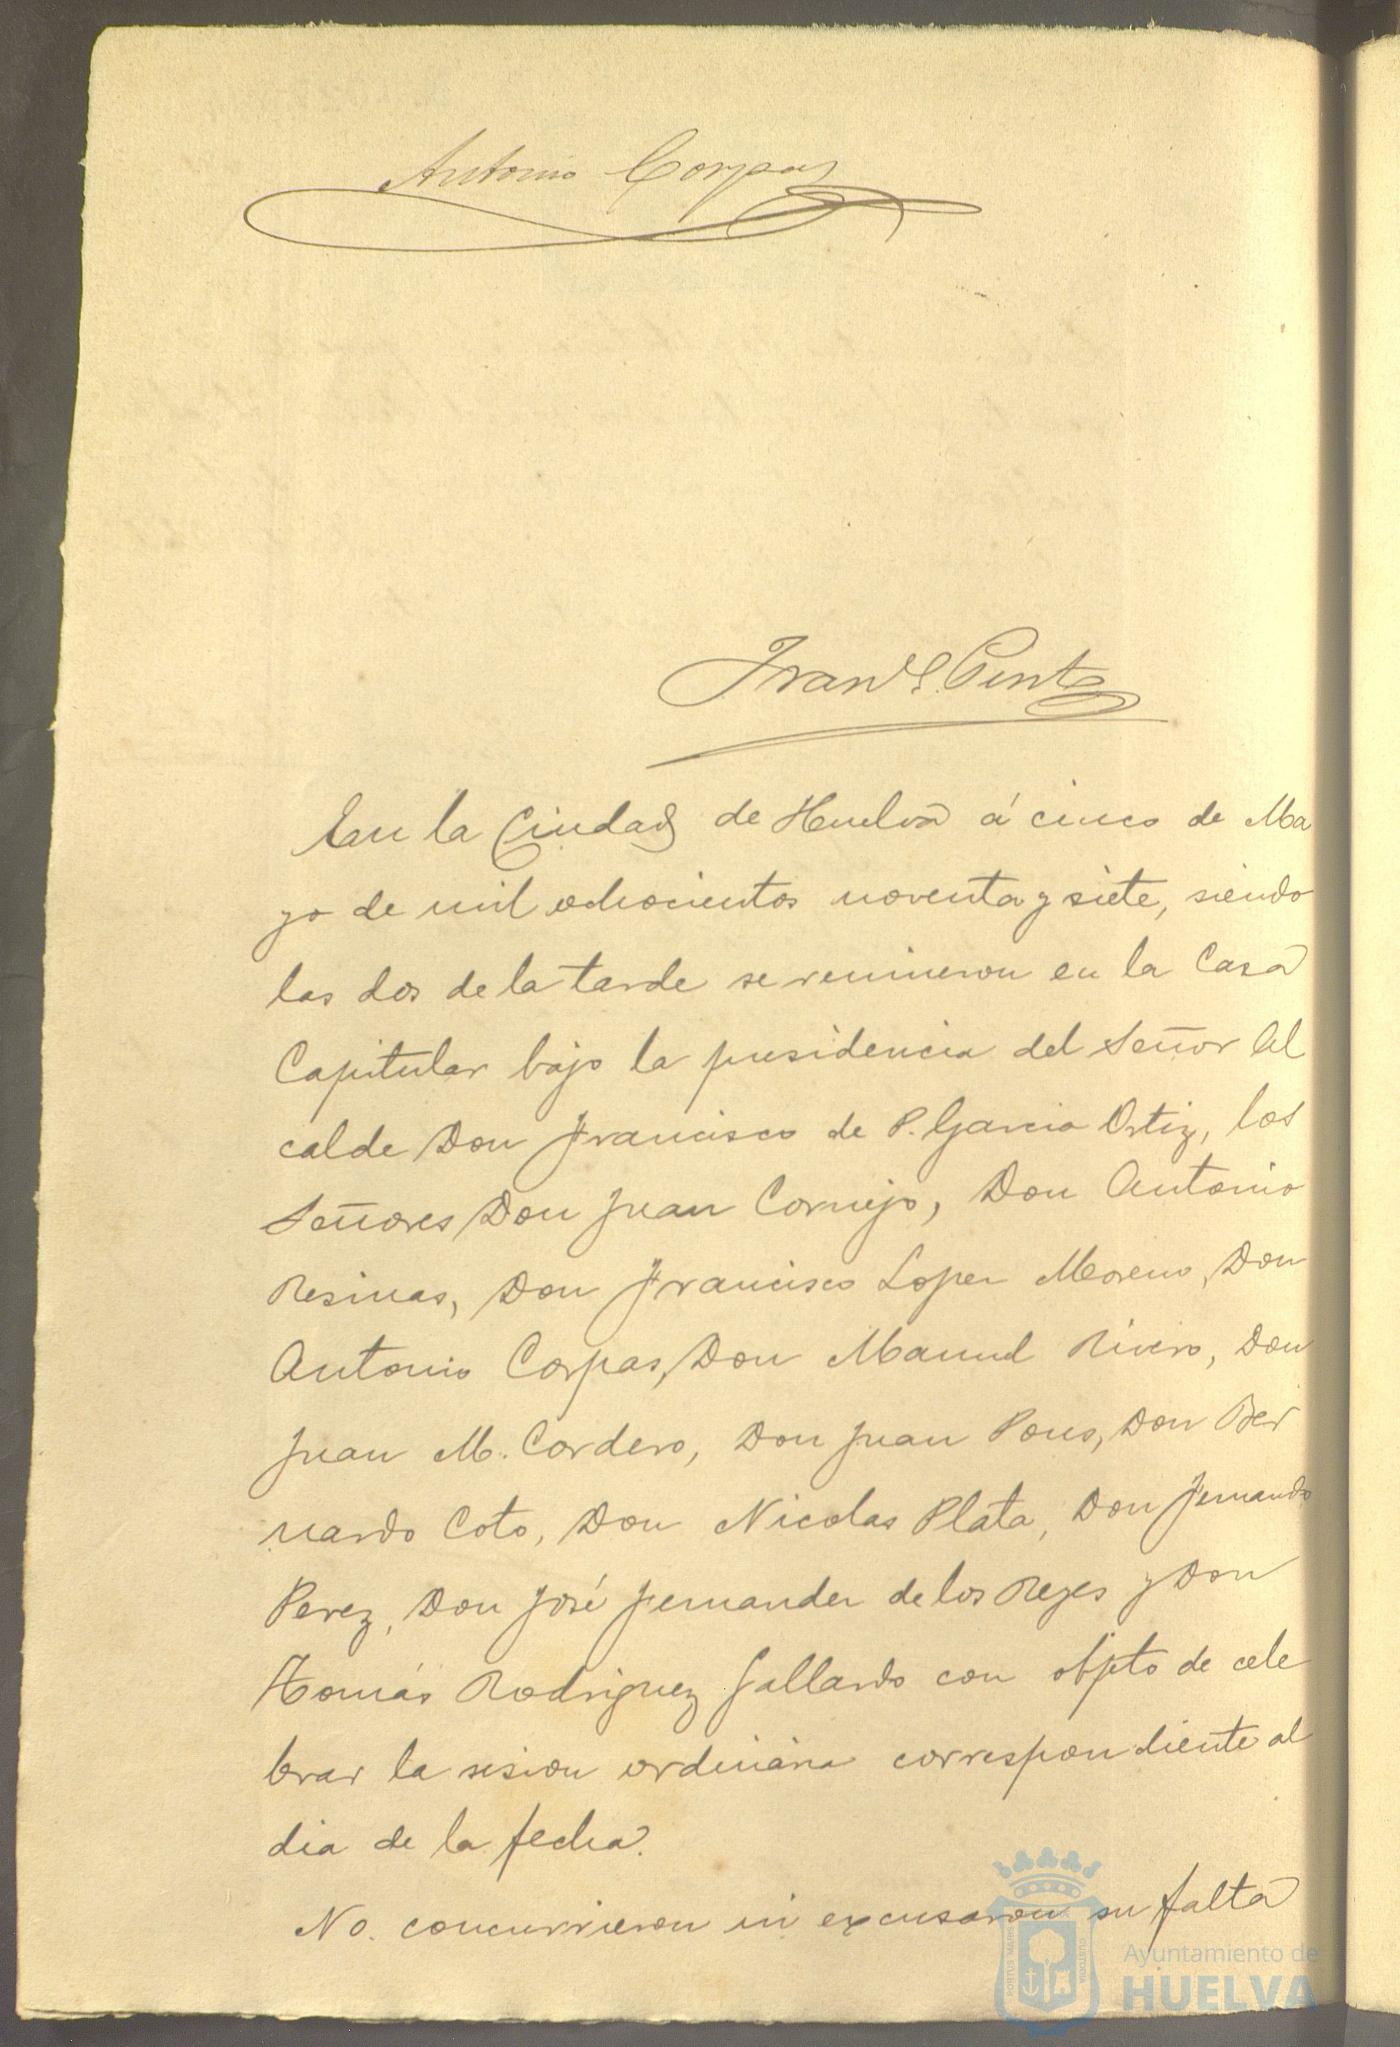 Antonio Corpas
En la Ciudad de Huelva á cinco de Ma
yo de mil ochocientos noventa y siete, siendo
las dos de la tarde se reunieron en la Casa
Capitular bajo la presidencia del Señor Al
calde Don Francisco de P. Garcia Ortiz, los
Señores Don Juan Cornejo, Don Antonio
Resinas, Don Francisco Lopez Moreno, Don
Antonio Corpas, Don Manuel Rivero, Don
Juan M. Cordero, Don Juan Pons, Don Ber
nardo Coto, Don Nicolas Plata, Don Fernando
Perez, Don José Fernandez de los Reyes y Don
Tomás Rodriguez Gallardo con objeto de cele
brar la sesion ordinaria correspondiente al
dia de la fecha.
No concurrieron ni excusaron su falta
Ayuntamiento de
HUELVA